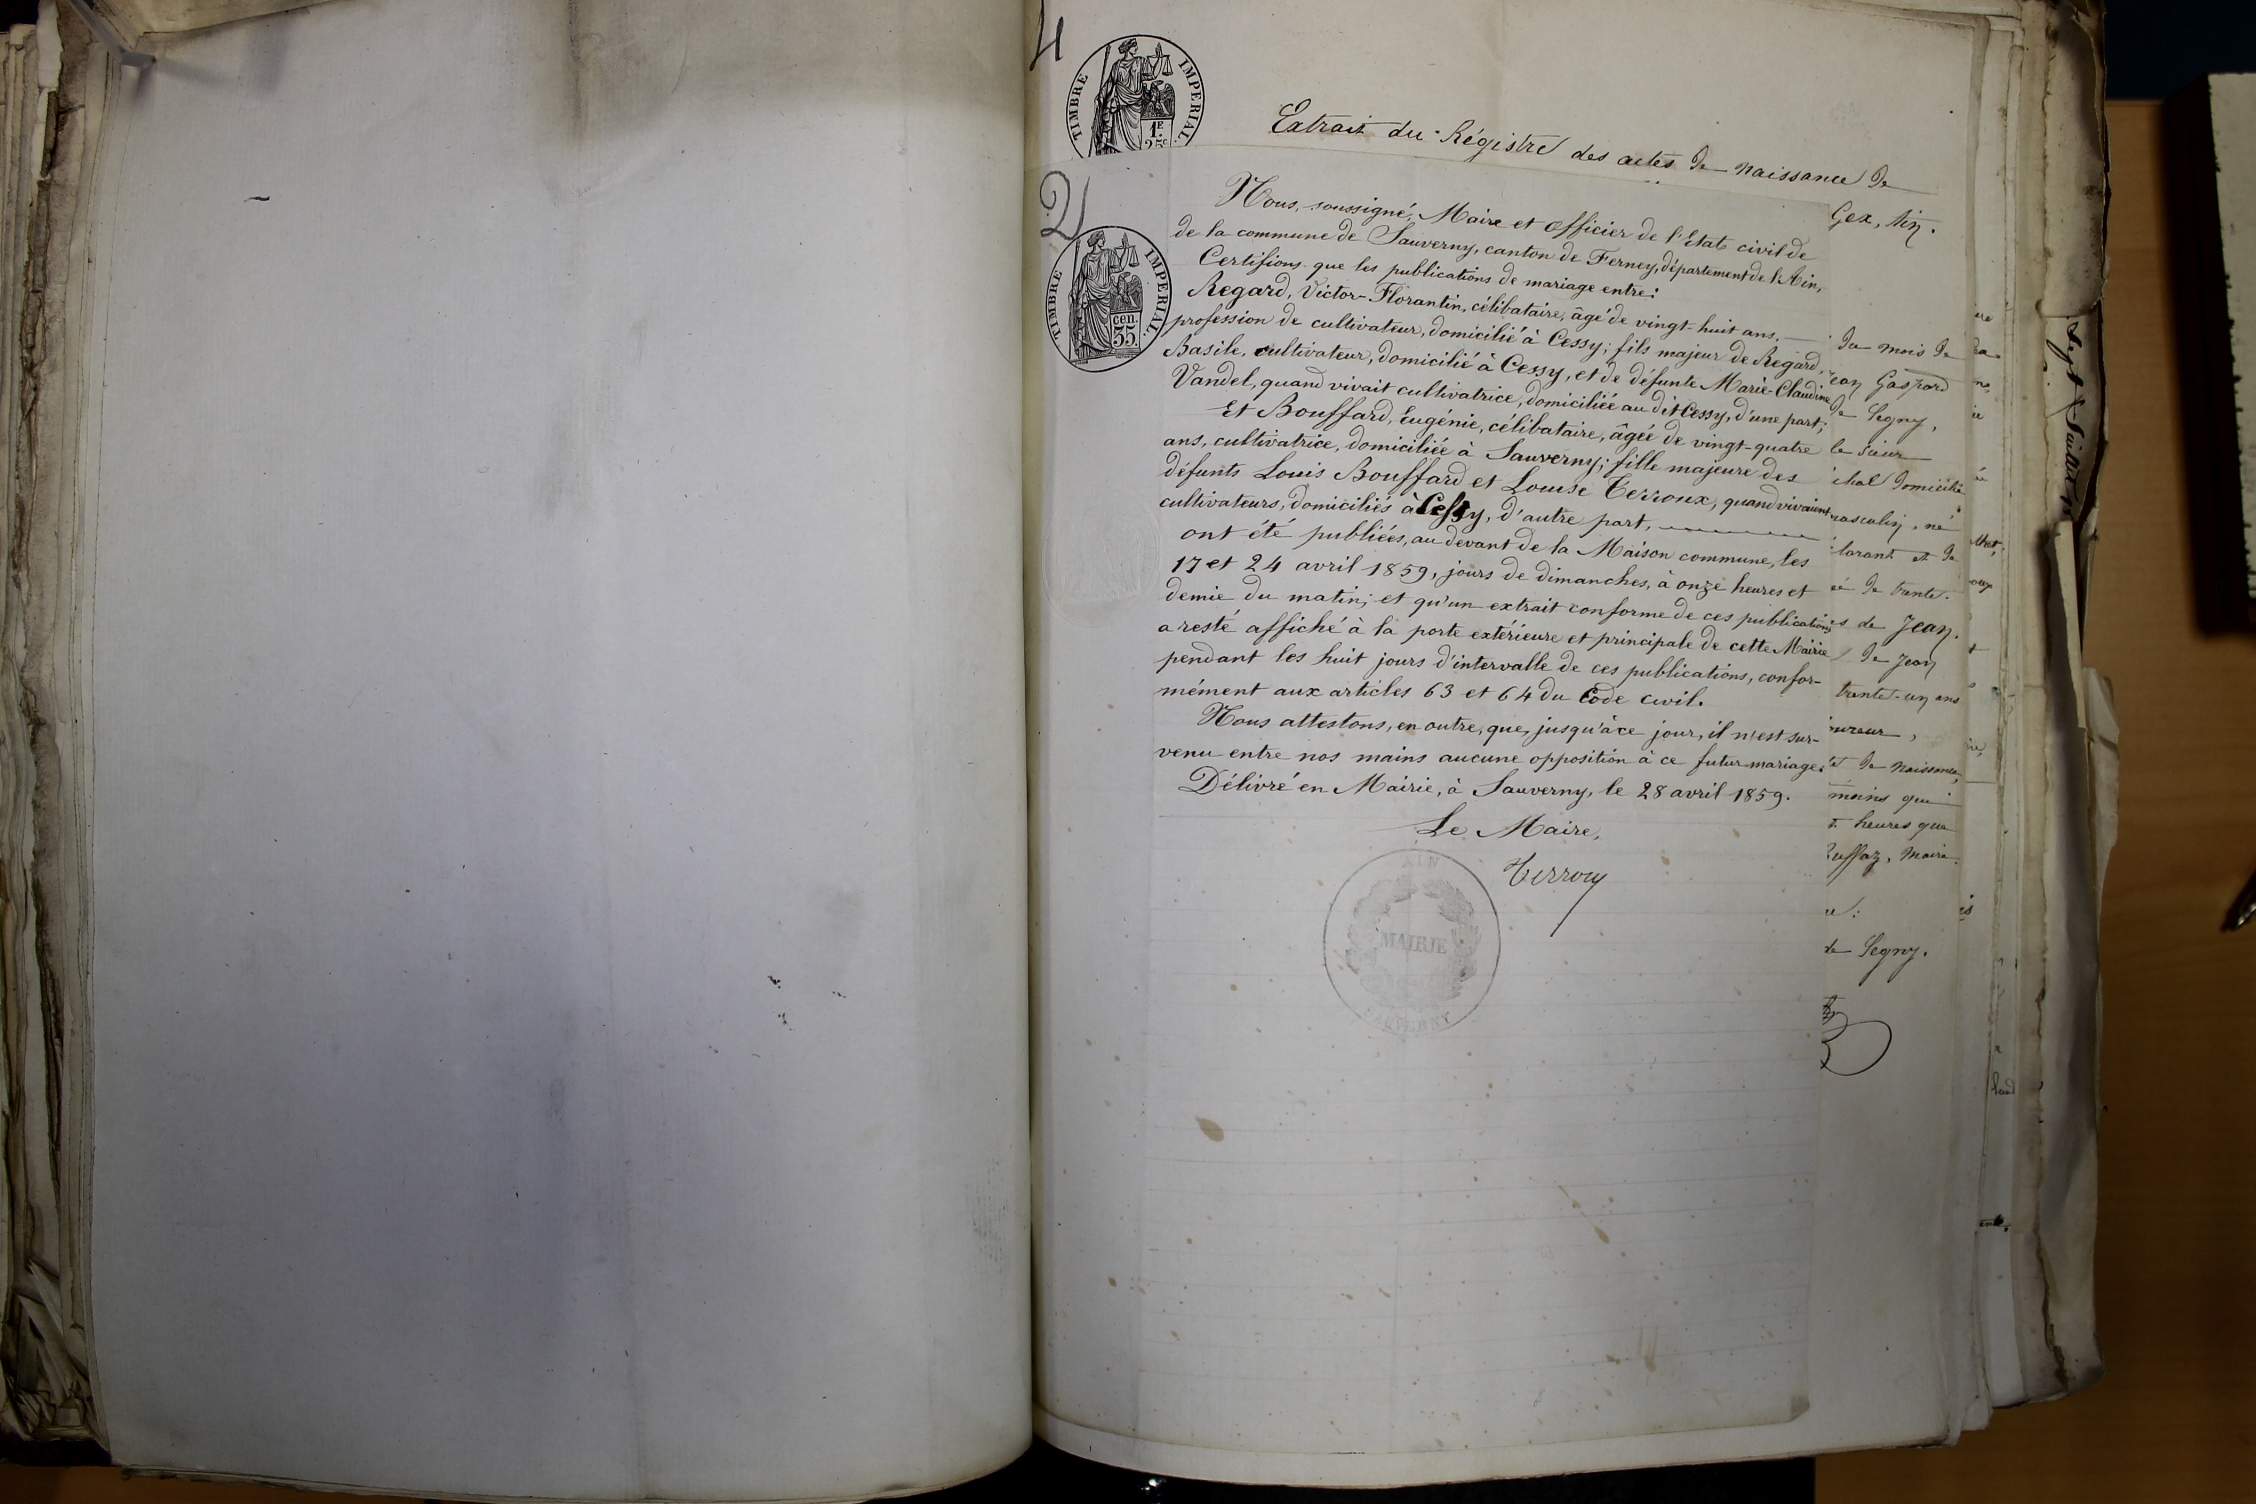 4
TIMBRE IMPERIAL
1F.
25c
Extrait du Régistre des actes de naissance de
Gex, Ain.
2
TIMBRE IMPERIAL.
cen.
35.
Nous, soussigné, Maire et officier de l'état civil de
de la commune de Sauverny, canton de Ferney, département de l'Ain,
Certifions que les publications de mariage entre:
Regard, Victor-Florantin, célibataire, âgé de vingt-huit ans,
profession de cultivateur, domicilié à Cessy; fils majeur de Regard,
Basile, cultivateur, domicilié à Cessy, et de défunte Marie-Claudine
Vandel, quand vivait cultivatrice, domiciliée au dit Cessy, d'une part;
Et Bouffard, Eugénie, célibataire, âgée de vingt-quatre
ans, cultivatrice, domiciliée à Sauverny; fille majeure des
défunts Louis Bouffard et Louise Terroux, quand vivaient
cultivateurs, domiciliés à Cessy, d'autre part,
ont été publiées, au devant de la Maison commune, les
17 et 24 avril 1859, jours de dimanches, à onze heures et
demie du matin; et qu'un extrait conforme de ces publications
a resté affiché à la porte extérieure et principale de cette Mairie
pendant les huit jours d'intervalle de ces publications, confor-
mément aux articles 63 et 64 du Code civil.
Nous attestons, en outre, que, jusqu'à ce jour, il n'est sur-
venu entre nos mains aucune opposition à ce futur mariage.
Délivré en Mairie, à Sauverny, le 28 avril 1859.
Le Maire,
Terroux
AIN
MAIRIE
SAUVERNY
du mois de
Gaspard
de Segny,
le sieur
domicilié
masculin, né
et de
de trente-
s de Jean
de Jean
trente-un ans
de naissance,
moins qui
heures que
Maire.
de Segny.